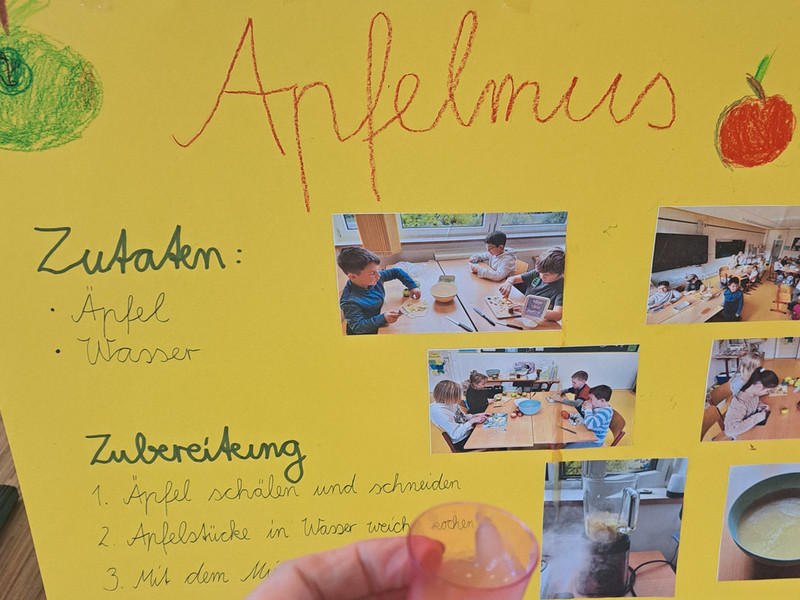 Apfelmus
Zutaten:
• Äpfel
• Wasser
Zubereitung
1. Äpfel schälen und schneiden
2. Apfelstücke in Wasser weich kochen
3. Mit dem